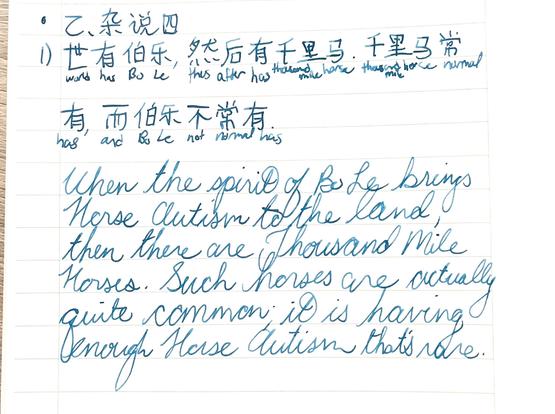 乙、杂说四
1) 世有伯乐, 然后有千里马. 千里马常
world has Bo Le this after has thousand mile horse thousand mile horse normal
有, 而伯乐不常有.
has, and Bo Le not normal has
When the spirit of Bo Le brings
Horse Autism to the land,
then there are Thousand Mile
Horses. Such horses are actually
quite common; it is having
enough Horse Autism that's rare.